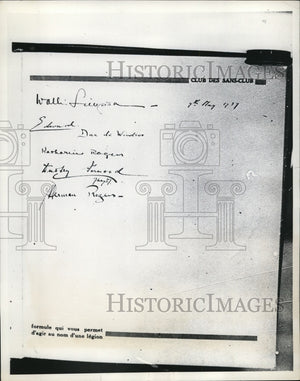 CLUB DES SANS-CLUB
Wallis Simpson
7th May 1937
Edward
Duc de Windsor
Katharine Rogers
Herman Rogers
formule qui vous permet
d'agir au nom d'une légion
HISTORICIMAGES
HISTORICIMAGES
HISTORICIMAGES